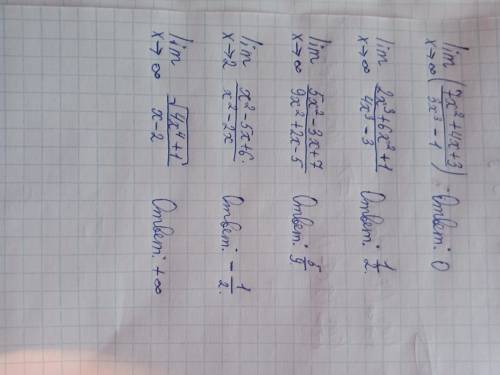 lim x→∞ (7x²+4x+3 / 5x³-1). Ответ: 0
lim x→∞ 2x³+6x²+1 / 4x³-3 Ответ: 1/2.
lim x→∞ 5x²-3x+7 / 9x²+2x-5 Ответ: 5/9.
lim x→2 x²-5x+6. / x²-2x Ответ: -1/2.
lim x→∞ √4x⁴+1 / x-2 Ответ: +∞